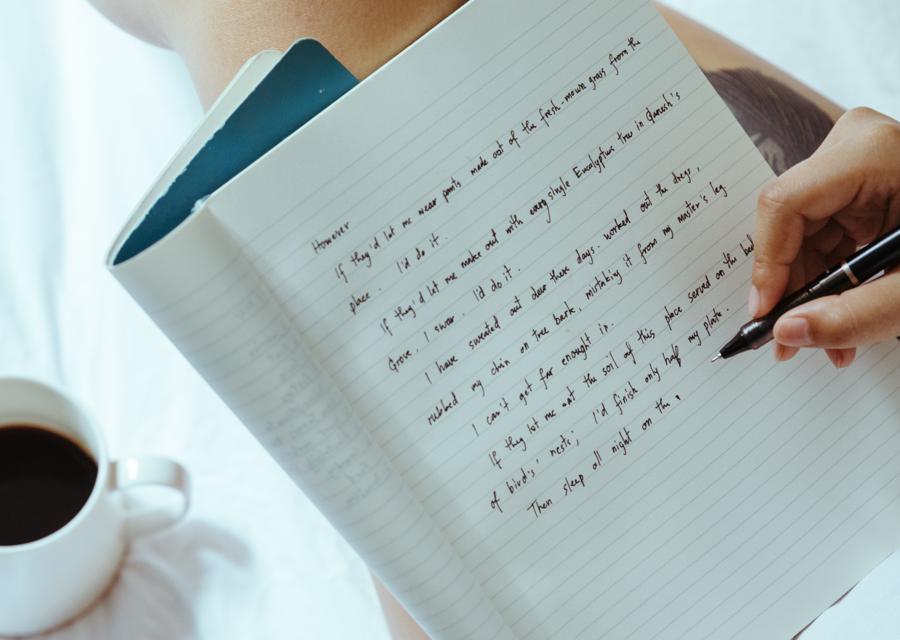 However
If they'd let me wear pants made out of the fresh-mown grass from the
place. I'd do it.
If they'd let me make out with every single Eucalyptus tree in Ganesh's
Grove, I swear. I'd do it.
I have sweated out dew these days. worked out the dregs,
rubbed my chin on tree bark, mistaking it from my master's leg.
I can't get far enough in.
If they let me eat the soil of this place served on the bed
of bird's nests; I'd finish only half my plate.
Then sleep all night on the